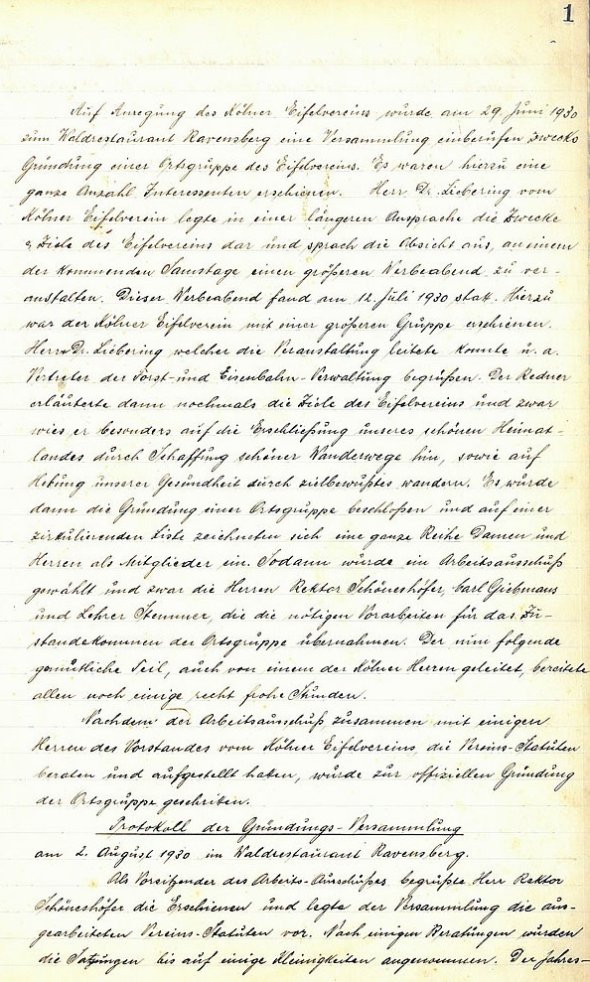 1
Auf Anregung des Kölner Eifelvereins wurde am 29. Juni 1930
zum Waldrestaurant Ravensberg eine Versammlung einberufen zwecks
Gründung einer Ortsgruppe des Eifelvereins. Es waren hierzu eine
ganze Anzahl Interessenten erschienen. Herr Dr. Liebering vom
Kölner Eifelverein legte in einer längeren Ansprache die Zwecke
& Ziele des Eifelvereins dar und sprach die Absicht aus, an einem
der kommenden Samstage einen größeren Werbeabend zu ver-
anstalten. Dieser Werbeabend fand am 12. Juli 1930 statt. Hierzu
war der Kölner Eifelverein mit einer größeren Gruppe erschienen.
Herr Dr. Liebering welcher die Veranstaltung leitete konnte u. a.
Vertreter der Forst- und Eisenbahn-Verwaltung begrüßen. Der Redner
erläuterte dann nochmals die Ziele des Eifelvereins und zwar
wies er besonders auf die Erschließung unseres schönen Heimat-
landes durch Schaffung schöner Wanderwege hin, sowie auf
Hebung unserer Gesundheit durch zielbewußtes wandern. Es wurde
dann die Gründung einer Ortsgruppe beschloßen und auf einer
zirkulierenden Liste zeichneten sich eine ganze Reihe Damen und
Herren als Mitglieder ein. Sodann wurde ein Arbeitsausschuß
gewählt und zwar die Herren Rektor Schöneshöfer, Carl
und Lehrer Stemmer, die die nötigen Vorarbeiten für das Zu-
standekommen der Ortsgruppe übernahmen. Der nun folgende
gemütliche Teil, auch von einem der Kölner Herren geleitet, bereitete
allen noch einige recht frohe Stunden.
Nachdem der Arbeitsausschuß zusammen mit einigen
Herren des Vorstandes vom Kölner Eifelvereins, die Vereins-Statuten
beraten und aufgestellt hatten, wurde zur offiziellen Gründung
der Ortsgruppe geschriten.
Protokoll der Gründungs-Versammlung
am 2. August 1930 im Waldrestaurant Ravensberg.
Als Vorsitzender des Arbeits-Ausschußes begrüßte Herr Rektor
Schöneshöfer die Erschienen und legte der Versammlung die aus-
gearbeiteten Vereins-Statuten vor. Nach einigen Beratungen wurden
die Satzungen bis auf einige Kleinigkeiten angenommen. Der Jahres-